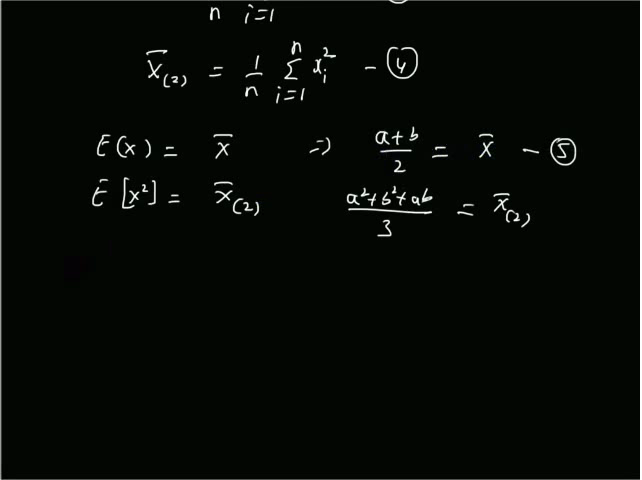 n i=1
X̄(2) = 1/n Σ_{i=1}^{n} x_i^2 - ④
E(x) = x̄ ⇒ a+b/2 = x̄ - ⑤
E[x²] = x̄(2) a²+b²+ab/3 = x̄(2)